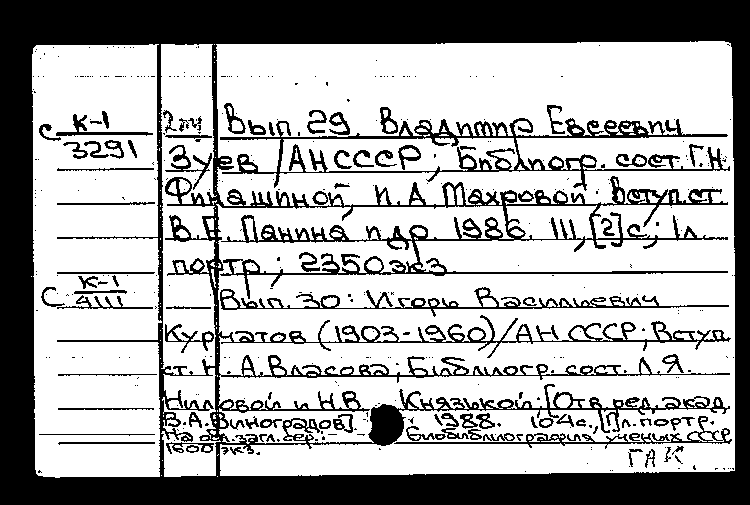 С К-1 2ти Вып. 29. Владимир Евсеевич
3291 Зуев / АН СССР; Библиогр. сост. Г.Н.
Финашиной, И.А. Махровой; Вступ. ст.
В.Е. Панина и др. 1986. 111, [2] с.; 1 л.
портр.; 2350 экз.
С К-1 4111 Вып. 30: Игорь Васильевич
Курчатов (1903-1960) / АН СССР; Вступ.
ст. Н.А. Власова; Библиогр. сост. Л.Я.
Нилловой и Н.В. Князькой; [Отв. ред. акад.
В.А. Виноградов]. 1988. 104 с., [1] л. портр.
На обл. загл. сер.: Биобиблиография ученых СССР
1600 экз.
ГАК.